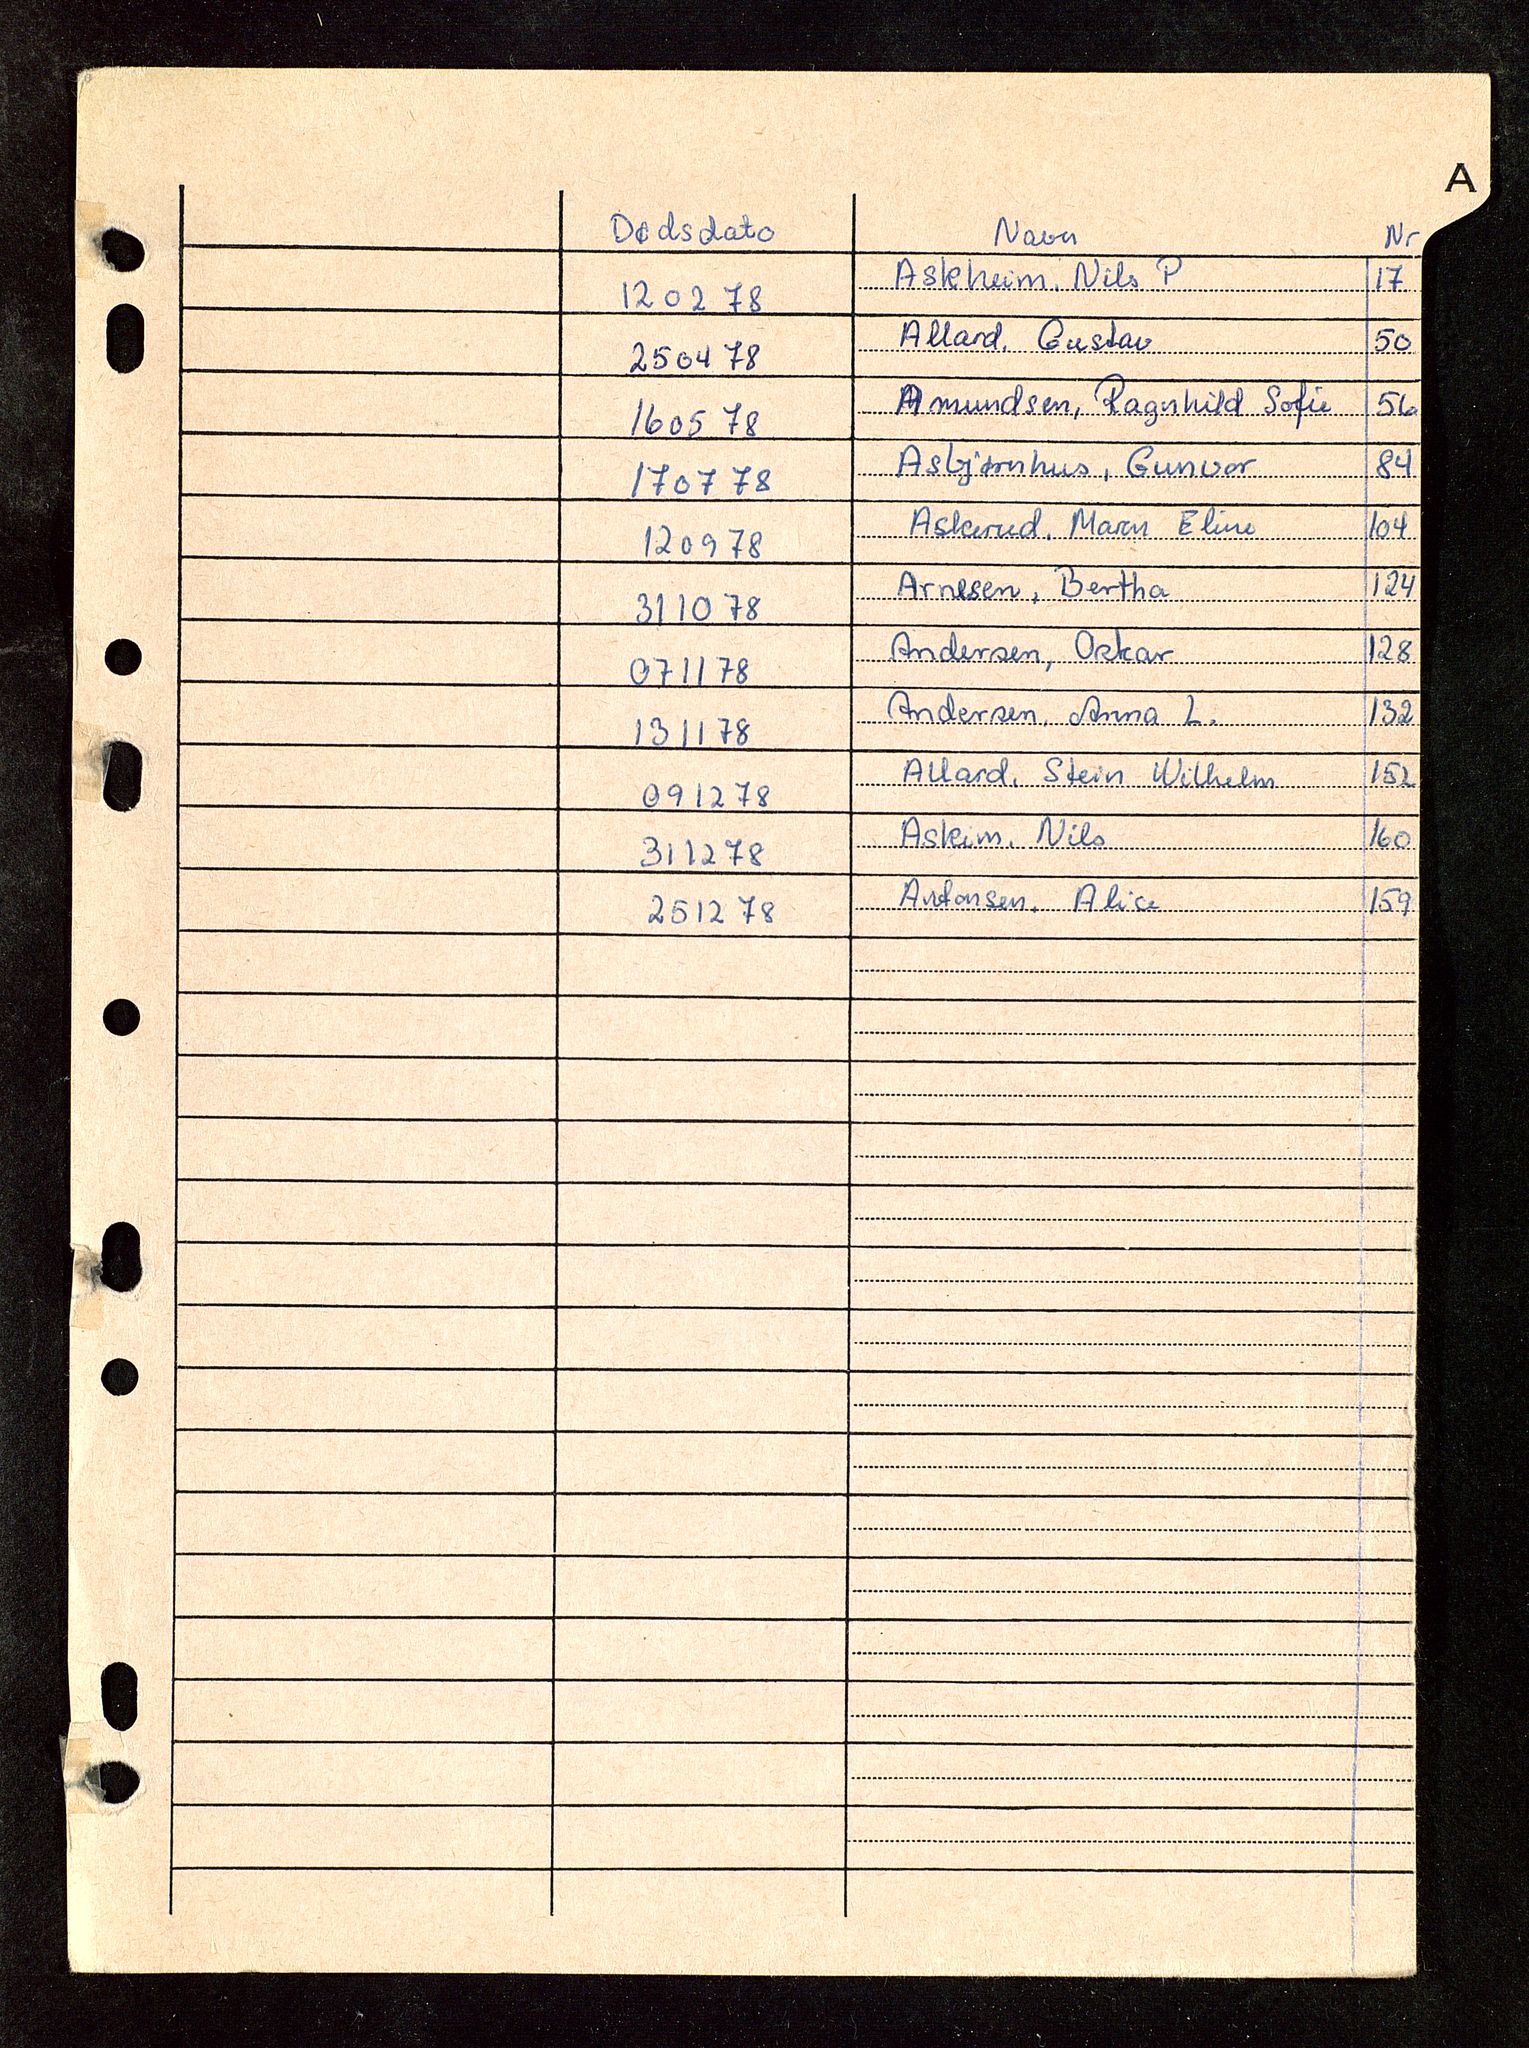 A
Dødsdato Navn Nr
120278 Askheim, Nils P 17
250478 Allard, Gustav 50
160578 Amundsen, Ragnhild Sofie 56
170778 Asbjørnhus, Gunvor 84
120978 Askerud, Eline 104
311078 Arnesen, Bertha 124
071178 Andersen, Oskar 128
131178 Andersen, Anna L. 132
091278 Allard, Stein Wilhelm 152
311278 Askim, Nils 160
251278 Antonsen, Alise 159